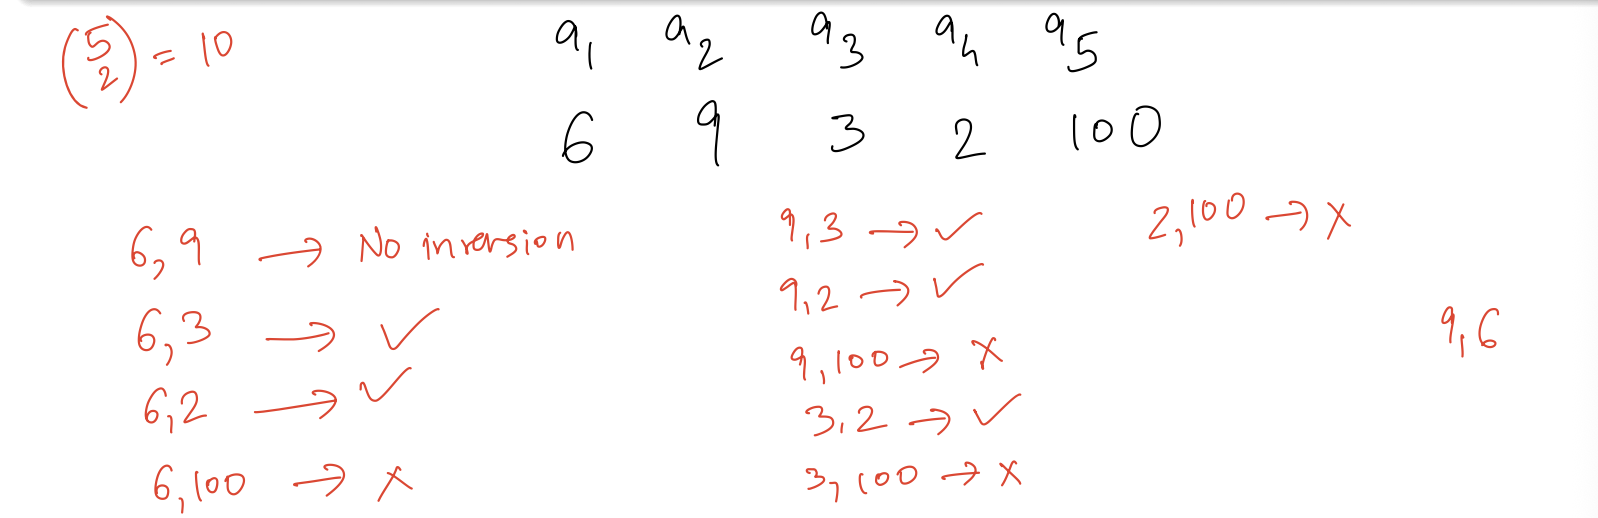 (5 2) = 10
a1 a2 a3 a4 a5
6 9 3 2 100
6,9 → No inversion
6,3 → ✓
6,2 → ✓
6,100 → x
9,3 → ✓
9,2 → ✓
9,100 → x
3,2 → ✓
3,100 → x
2,100 → x
9,6